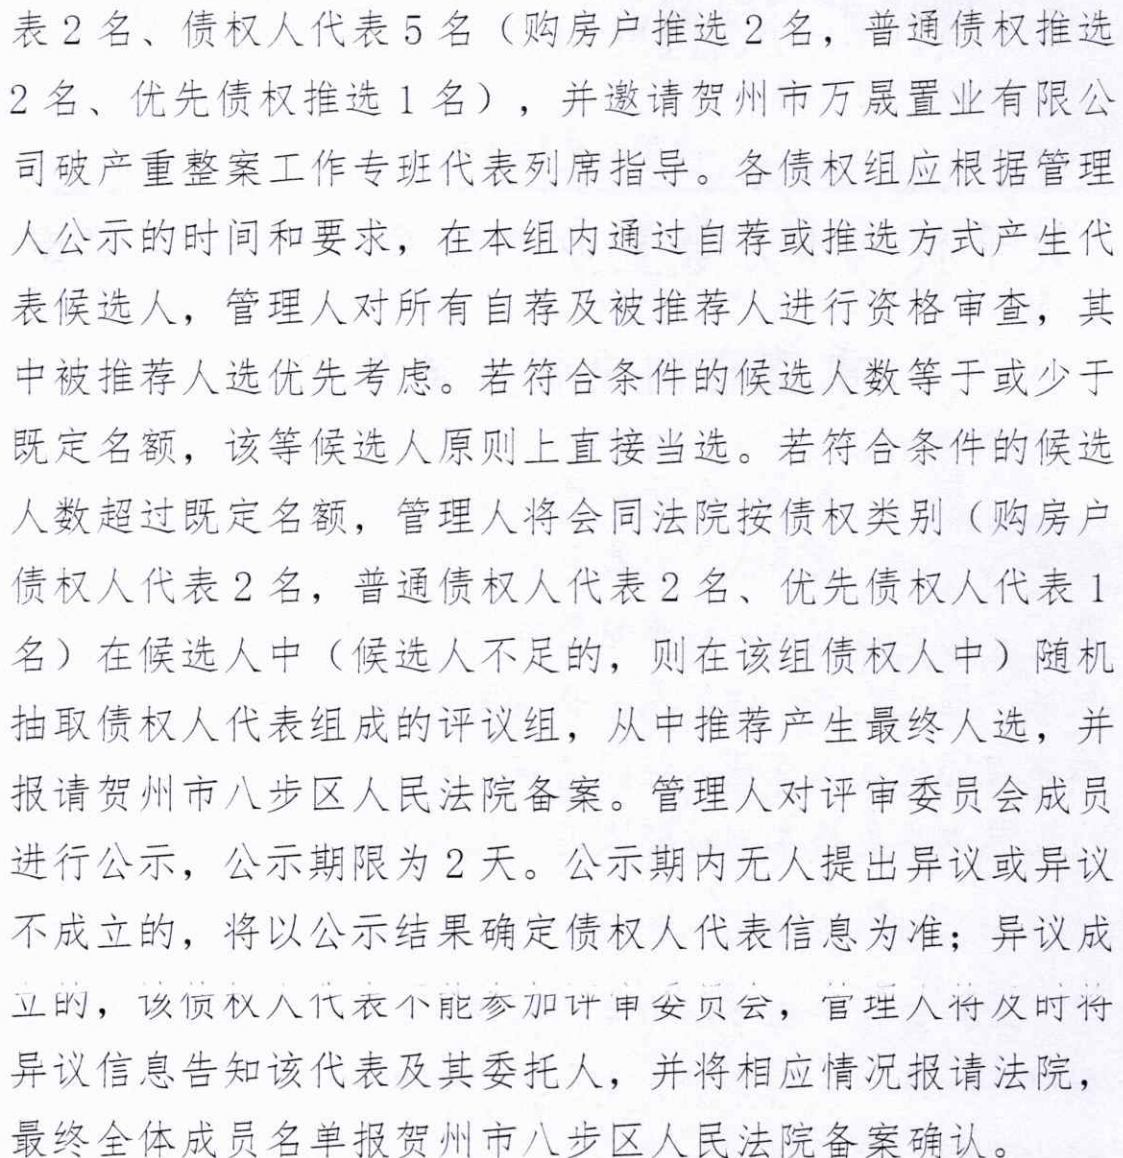 表2名、债权人代表5名（购房户推选2名，普通债权推选
2名、优先债权推选1名），并邀请贺州市万晟置业有限公
司破产重整案工作专班代表列席指导。各债权组应根据管理
人公示的时间和要求，在本组内通过自荐或推选方式产生代
表候选人，管理人对所有自荐及被推荐人进行资格审查，其
中被推荐人选优先考虑。若符合条件的候选人数等于或少于
既定名额，该等候选人原则上直接当选。若符合条件的候选
人数超过既定名额，管理人将会同法院按债权类别（购房户
债权人代表2名，普通债权人代表2名、优先债权人代表1
名）在候选人中（候选人不足的，则在该组债权人中）随机
抽取债权人代表组成的评议组，从中推荐产生最终人选，并
报请贺州市八步区人民法院备案。管理人对评审委员会成员
进行公示，公示期限为2天。公示期内无人提出异议或异议
不成立的，将以公示结果确定债权人代表信息为准；异议成
立的，该债权人代表不能参加评审委员会，管理人将及时将
异议信息告知该代表及其委托人，并将相应情况报请法院，
最终全体成员名单报贺州市八步区人民法院备案确认。